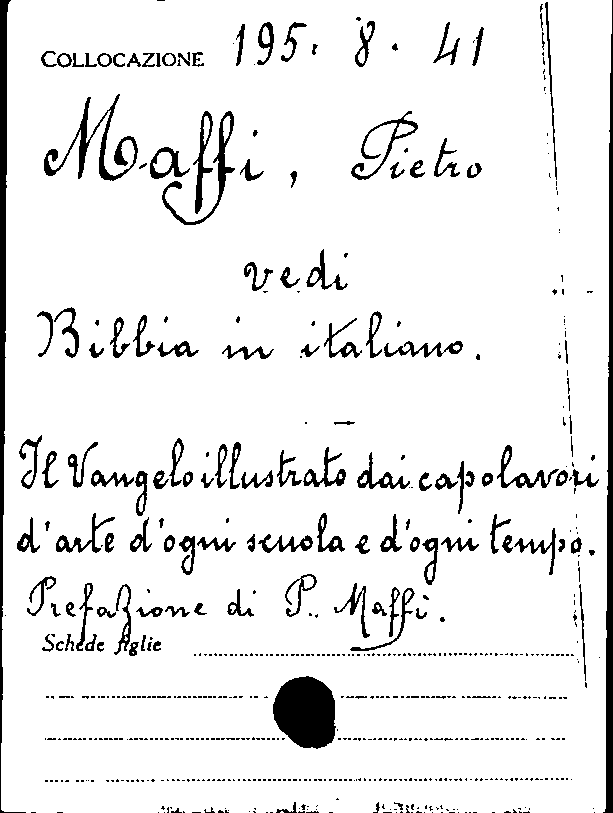 COLLOCAZIONE 195. 8. 41
Maffi, Pietro
vedi
Bibbia in italiano.
Il Vangelo illustrato dai capolavori
d'arte d'ogni scuola e d'ogni tempo.
Prefazione di P. Maffi.
Schede figlie